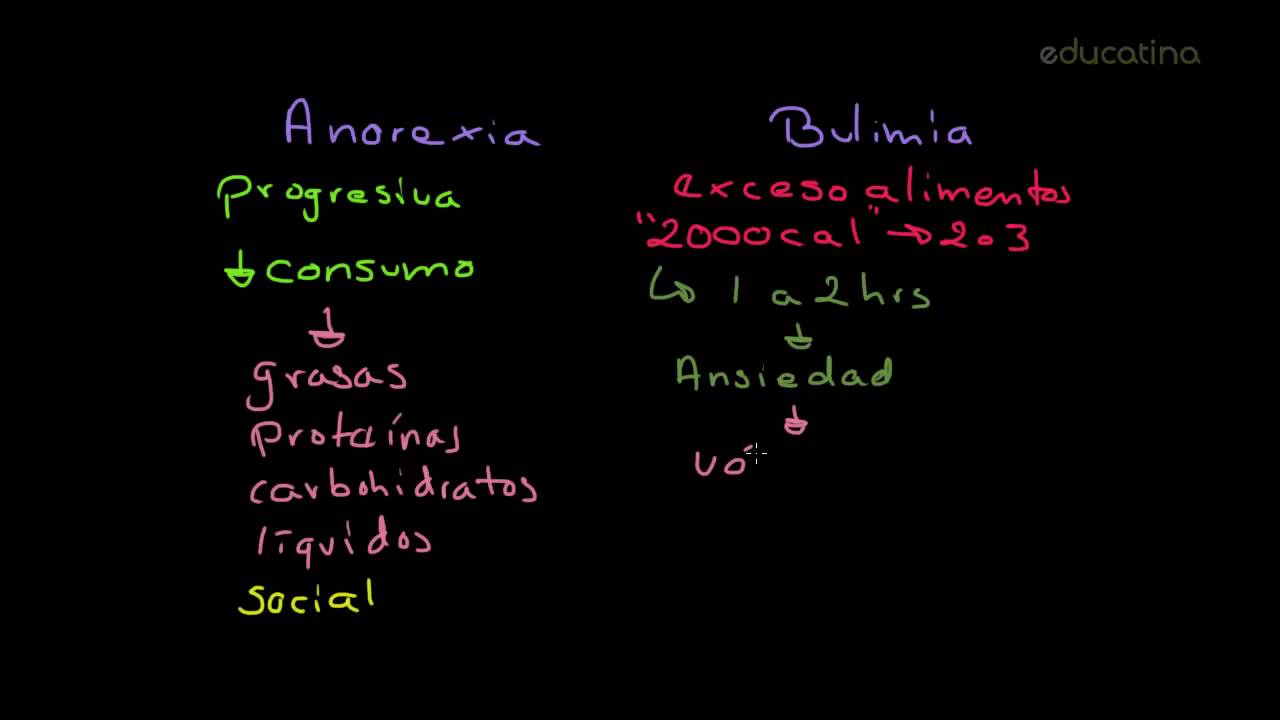 educatina
Anorexia
Progresiva
↓ consumo
↓
grasas
proteínas
carbohidratos
líquidos
social
Bulimia
exceso alimentos
"2000cal" → 2o3
↳ 1 a 2 hrs
↓
Ansiedad
↓
vó